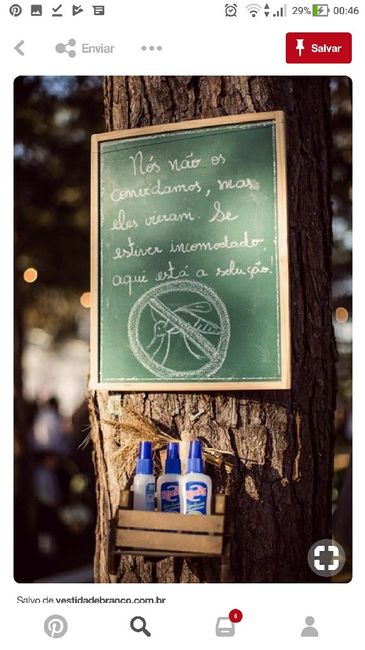 29% 00:46
Enviar
Salvar
Nós não os
convidamos, mas
eles vieram. Se
estiver incomodado
aqui está a solução!
Salvo de vestidadebranco.com.br
6